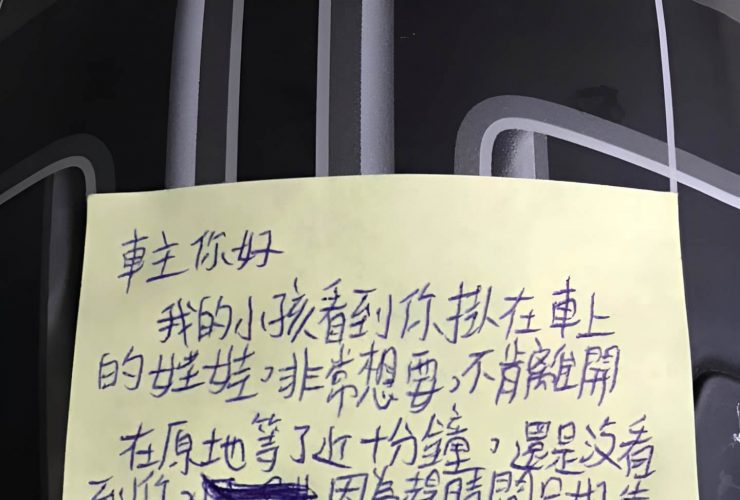 車主你好
我的小孩看到你掛在車上
的娃娃，非常想要，不肯離開
在原地等了近十分鐘，還是沒看
到你，因為趕時間只好先